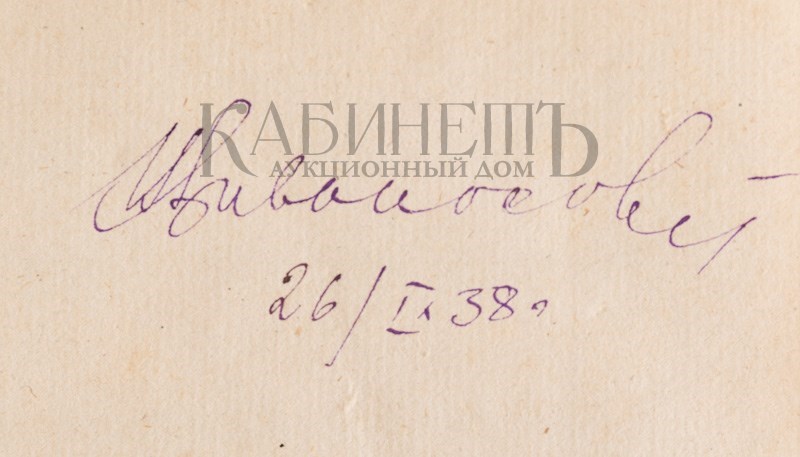 КАБИНЕТЪ
АУКЦИОННЫЙ ДОМ
26/IX 38г